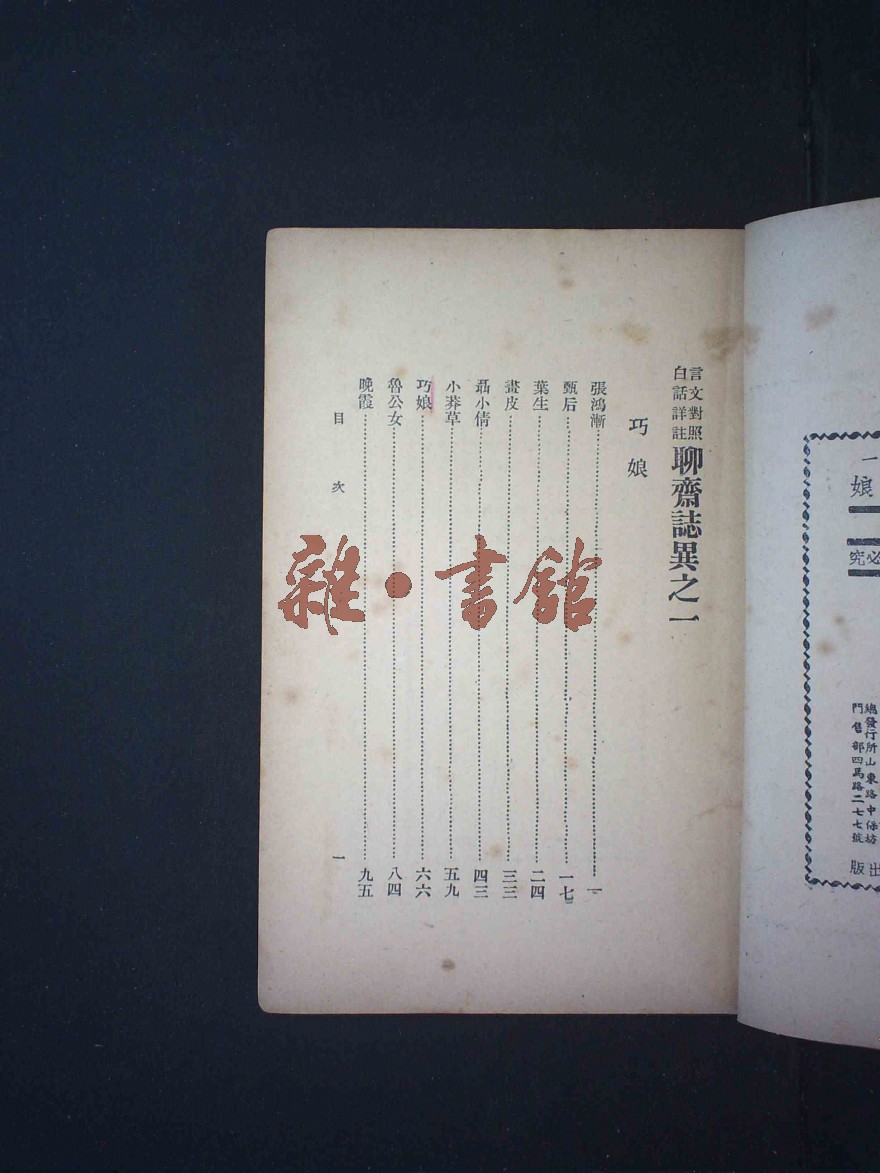 一
娘
必究
總發行所山東路中保坊
門售部四馬路二七七號
出版
言文對照
白話詳註
聊齋誌異之一
巧娘
張鴻漸 一
甄后 一七
葉生 二四
畫皮 三三
聶小倩 四三
小莽草 五九
巧娘 六六
魯公女 八四
晚霞 九五
目次 一
雜·書館